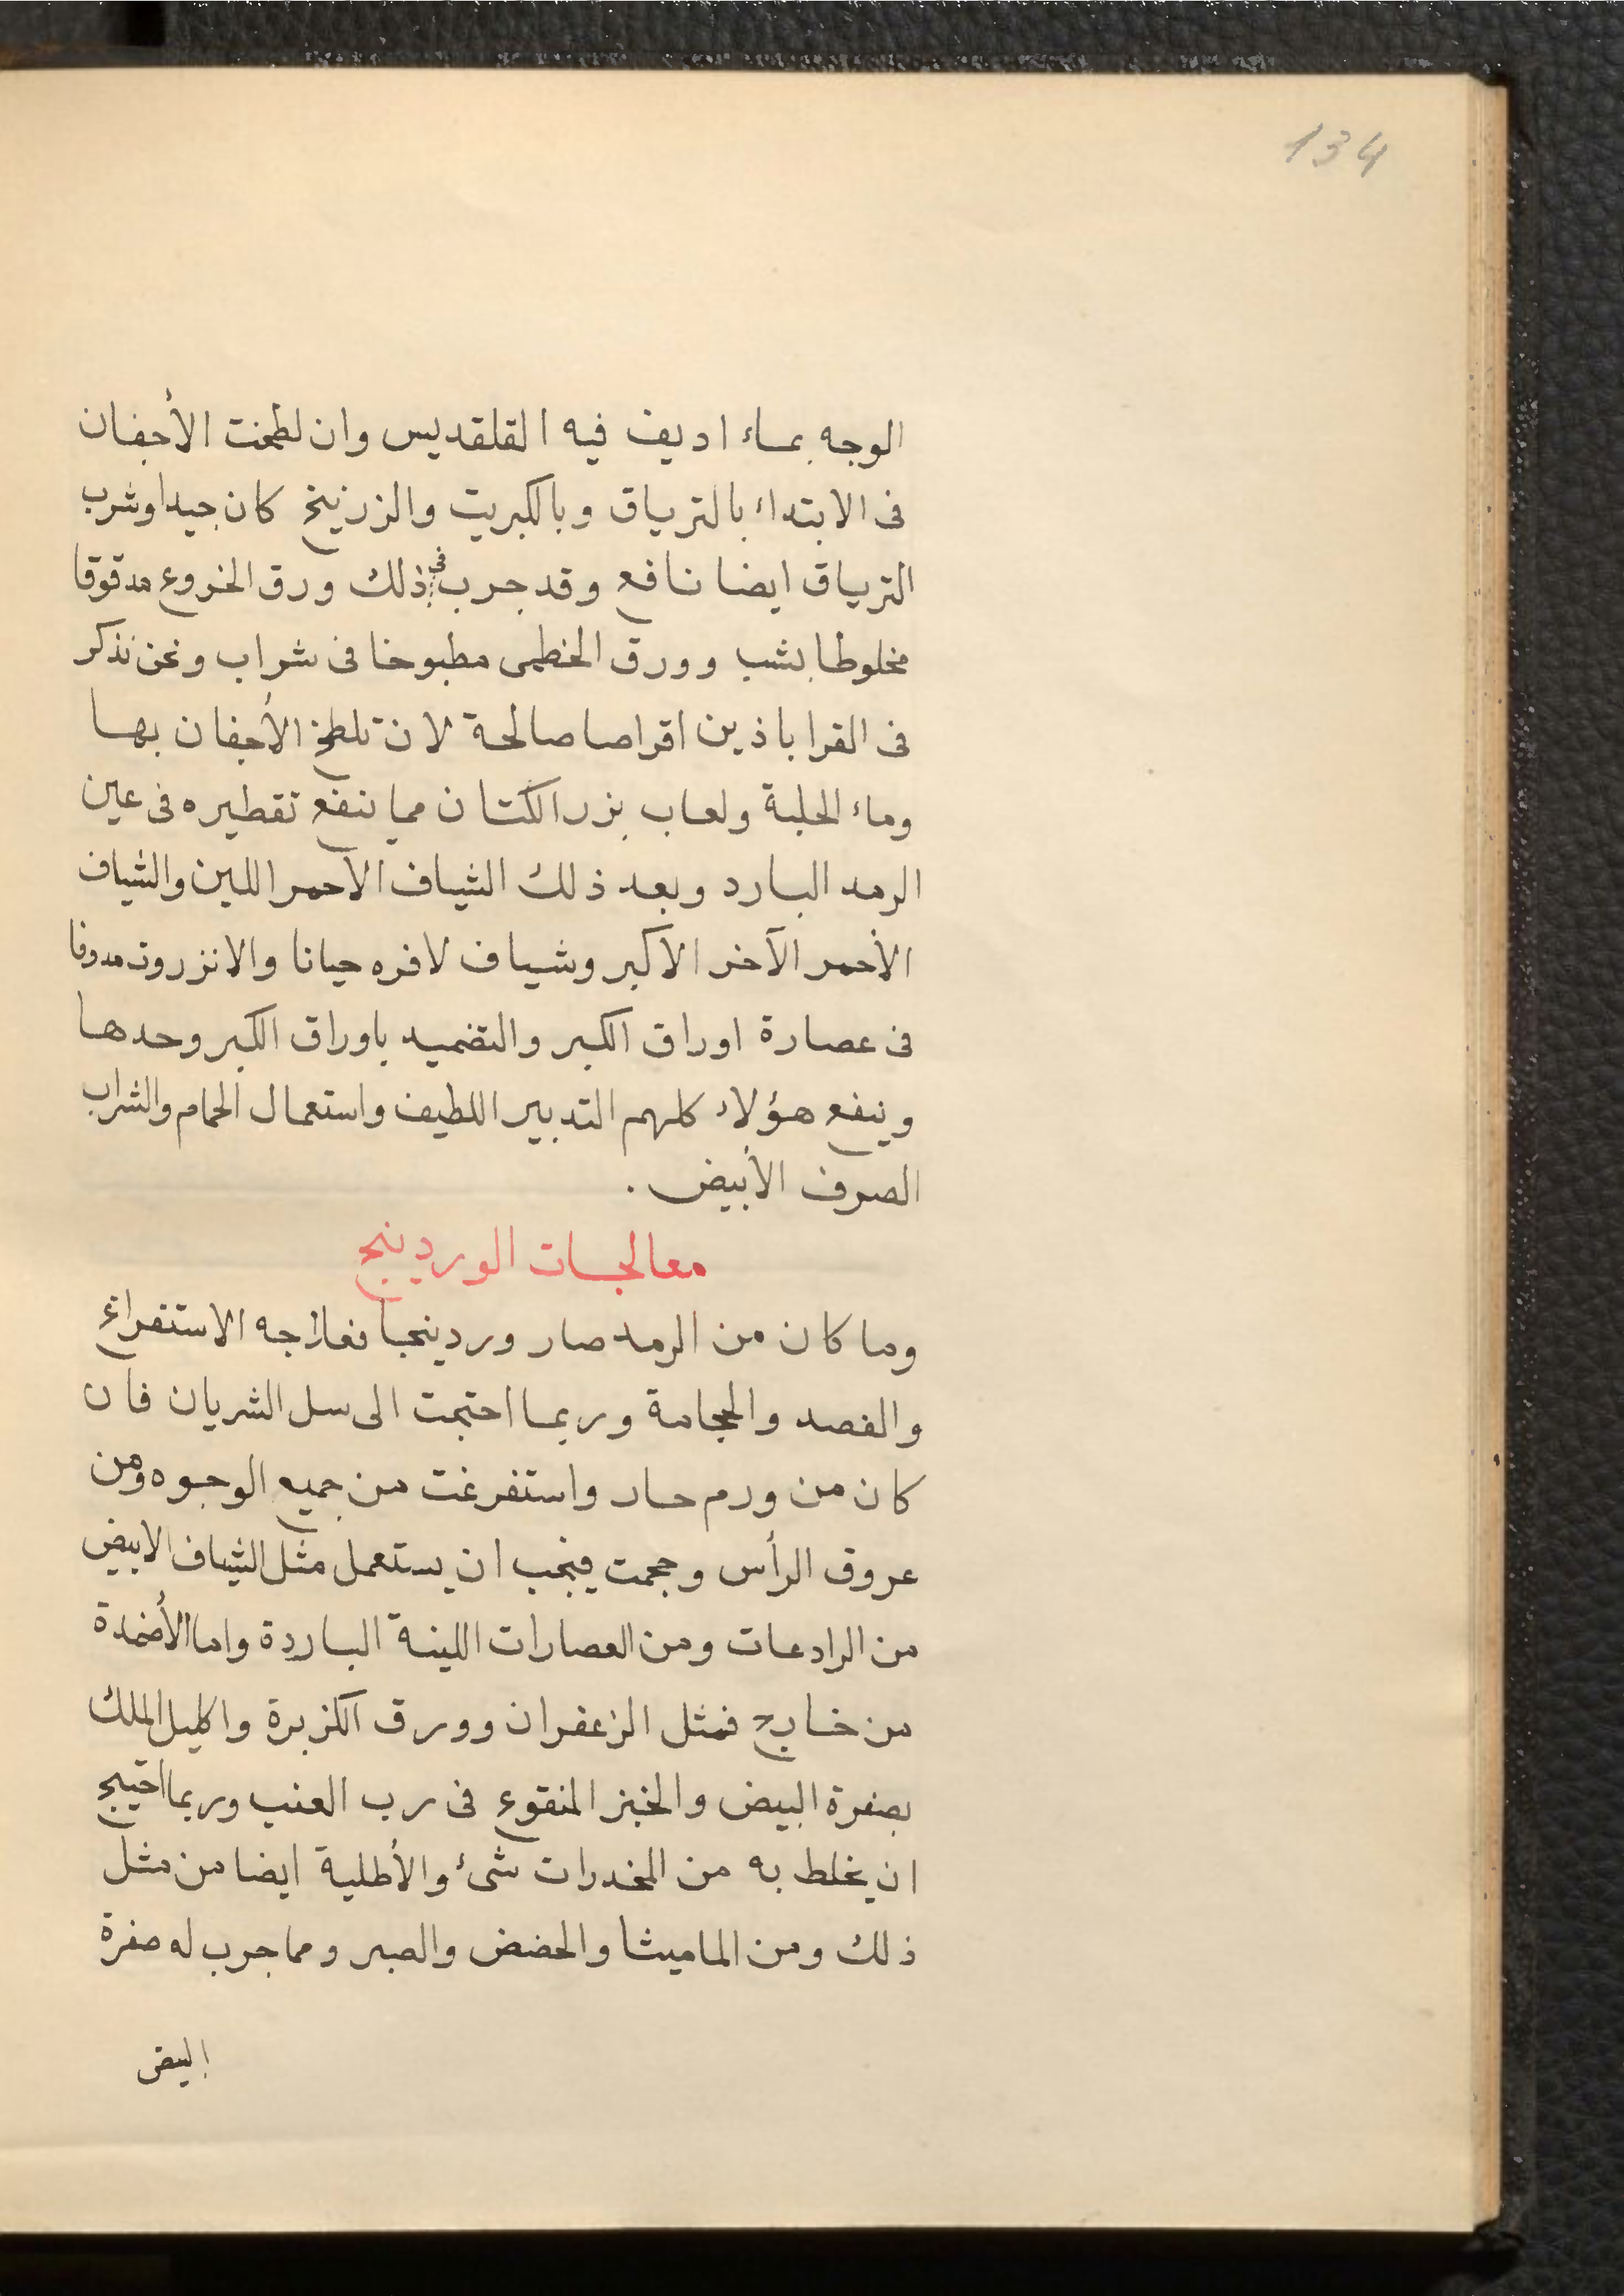 134
الوجه بماء اديف فيه القلقديس وان لطخت الأجفان
فى الابتداء بالترياق وبالكبريت والزرنيخ كان جيدا وشرب
الترياق ايضا نافع وقد جرب فى ذلك ورق الخروع مدقوقا
مخلوطا بشب وورق الخطمى مطبوخا فى شراب ونحن نذكر
فى القراباذين اقراصا صالحة لان تلطخ الأجفان بها
وماء الحلبة ولعاب بزر الكتان مما ينفع تقطيره فى عين
الرمد البارد وبعد ذلك الشياف الأحمر اللين والشياف
الأحمر الآخر الأكبر وشياف لافره حيانا والانزروت مدوفا
فى عصارة اوراق الكبر والتضميد باوراق الكبر وحدها
وينفع هؤلاء كلهم التدبير اللطيف واستعمال الحمام والشراب
الصرف الأبيض .
معالجات الوردينج
وما كان من الرمد صار وردينجا فعلاجه الاستفراغ
والفصد والحجامة وربما احتجت الى سل الشريان فان
كان من ورم حار واستفرغت من جميع الوجوه ومن
عروق الرأس وحجمت فيجب ان يستعمل مثل الشياف الابيض
من الرادعات ومن العصارات اللينة الباردة واما الأضمدة
من خارج فمثل الزعفران وورق الكزبرة واكليل الملك
بصفرة البيض والخبز المنقوع فى رب العنب وربما احتيج
ان يخلط به من المخدرات شىء والأطلية ايضا من مثل
ذلك ومن الماميثا والحضض والصبر ومما جرب له صفرة
البيض